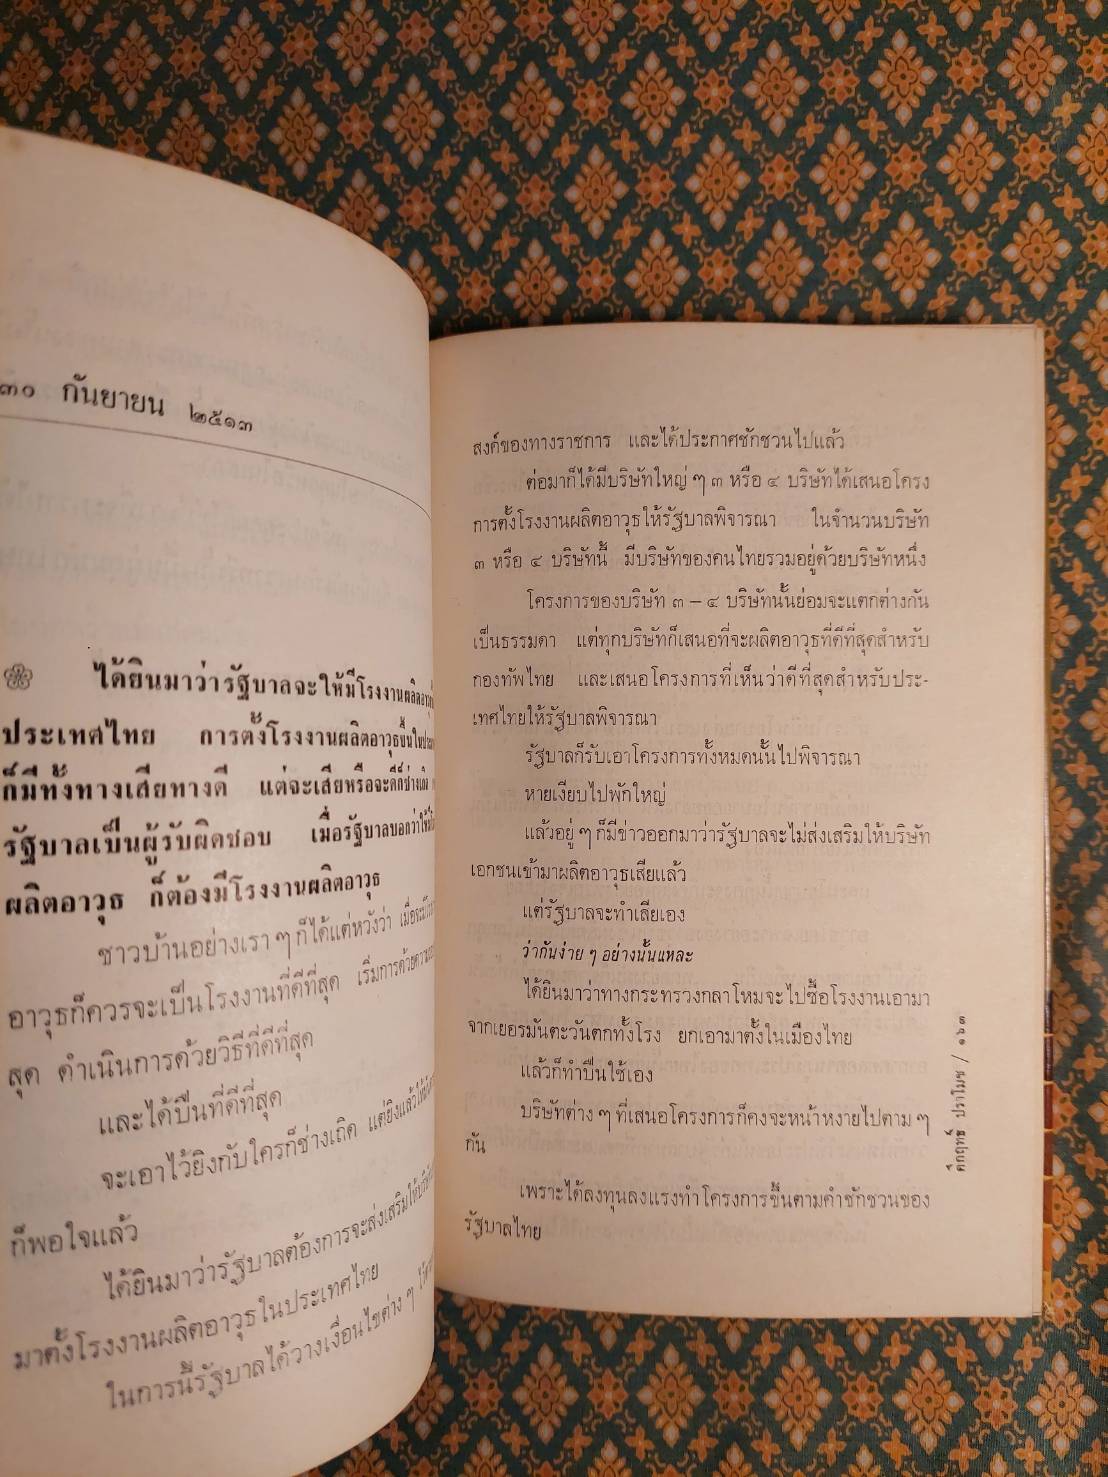 ๓๐ กันยายน ๒๕๑๓
ได้ยินมาว่ารัฐบาลจะให้มีโรงงานผลิตอาวุธ
ประเทศไทย การตั้งโรงงานผลิตอาวุธขึ้นใน
ก็มีทั้งทางเสียทางดี แต่จะเสียหรือจะดีก็ช่างเถิด
รัฐบาลเป็นผู้รับผิดชอบ เมื่อรัฐบาลบอกว่าให้มี
ผลิตอาวุธ ก็ต้องมีโรงงานผลิตอาวุธ
ชาวบ้านอย่างเรา ๆ ก็ได้แต่หวังว่า เมื่อจะมี
อาวุธก็ควรจะเป็นโรงงานที่ดีที่สุด เริ่มการด้วย
สุด ดำเนินการด้วยวิธีที่ดีที่สุด
และได้ปืนที่ดีที่สุด
จะเอาไว้ยิงกับใครก็ช่างเถิด แต่ยิงแล้วให้
ก็พอใจแล้ว
ได้ยินมาว่ารัฐบาลต้องการจะส่งเสริมให้บริษัท
มาตั้งโรงงานผลิตอาวุธในประเทศไทย
ในการนี้รัฐบาลได้วางเงื่อนไขต่าง ๆ
สงค์ของทางราชการ และได้ประกาศชักชวนไปแล้ว
ต่อมาก็ได้มีบริษัทใหญ่ ๆ ๓ หรือ ๔ บริษัทได้เสนอโครง
การตั้งโรงงานผลิตอาวุธให้รัฐบาลพิจารณา ในจำนวนบริษัท
๓ หรือ ๔ บริษัทนี้ มีบริษัทของคนไทยรวมอยู่ด้วยบริษัทหนึ่ง
โครงการของบริษัท ๓ – ๔ บริษัทนั้นย่อมจะแตกต่างกัน
เป็นธรรมดา แต่ทุกบริษัทก็เสนอที่จะผลิตอาวุธที่ดีที่สุดสำหรับ
กองทัพไทย และเสนอโครงการที่เห็นว่าดีที่สุดสำหรับประ-
เทศไทยให้รัฐบาลพิจารณา
รัฐบาลก็รับเอาโครงการทั้งหมดนั้นไปพิจารณา
หายเงียบไปพักใหญ่
แล้วอยู่ ๆ ก็มีข่าวออกมาว่ารัฐบาลจะไม่ส่งเสริมให้บริษัท
เอกชนเข้ามาผลิตอาวุธเสียแล้ว
แต่รัฐบาลจะทำเสียเอง
ว่ากันง่าย ๆ อย่างนั้นแหละ
ได้ยินมาว่าทางกระทรวงกลาโหมจะไปซื้อโรงงานเอามา
จากเยอรมันตะวันตกทั้งโรง ยกเอามาตั้งในเมืองไทย
แล้วก็ทำปืนใช้เอง
บริษัทต่าง ๆ ที่เสนอโครงการก็คงจะหน้าหงายไปตาม ๆ
กัน
เพราะได้ลงทุนลงแรงทำโครงการขึ้นตามคำชักชวนของ
รัฐบาลไทย
คึกฤทธิ์ ปราโมช / ๑๖๓